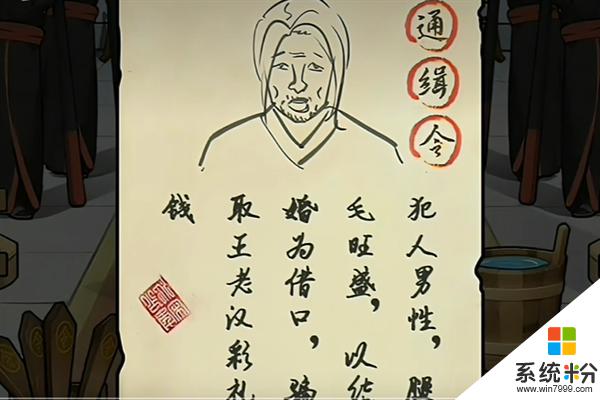 通缉令
犯人男性，腿
毛旺盛，以结
婚为借口，骗
取王老汉彩礼
钱
系统粉
www.win7999.com